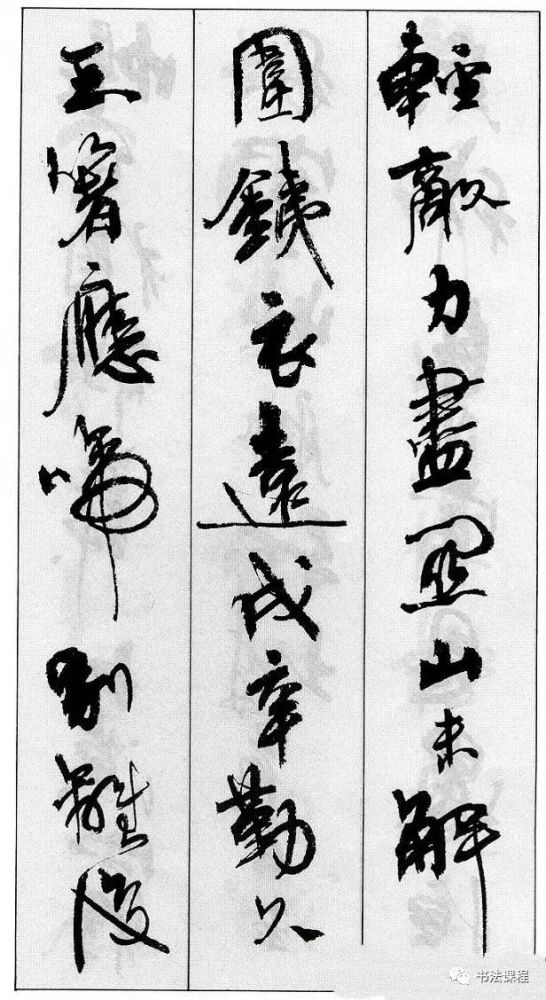 輕敵力盡関山未解
圍鐵衣遠戍辛勤久
玉箸應啼別離後
书法课程